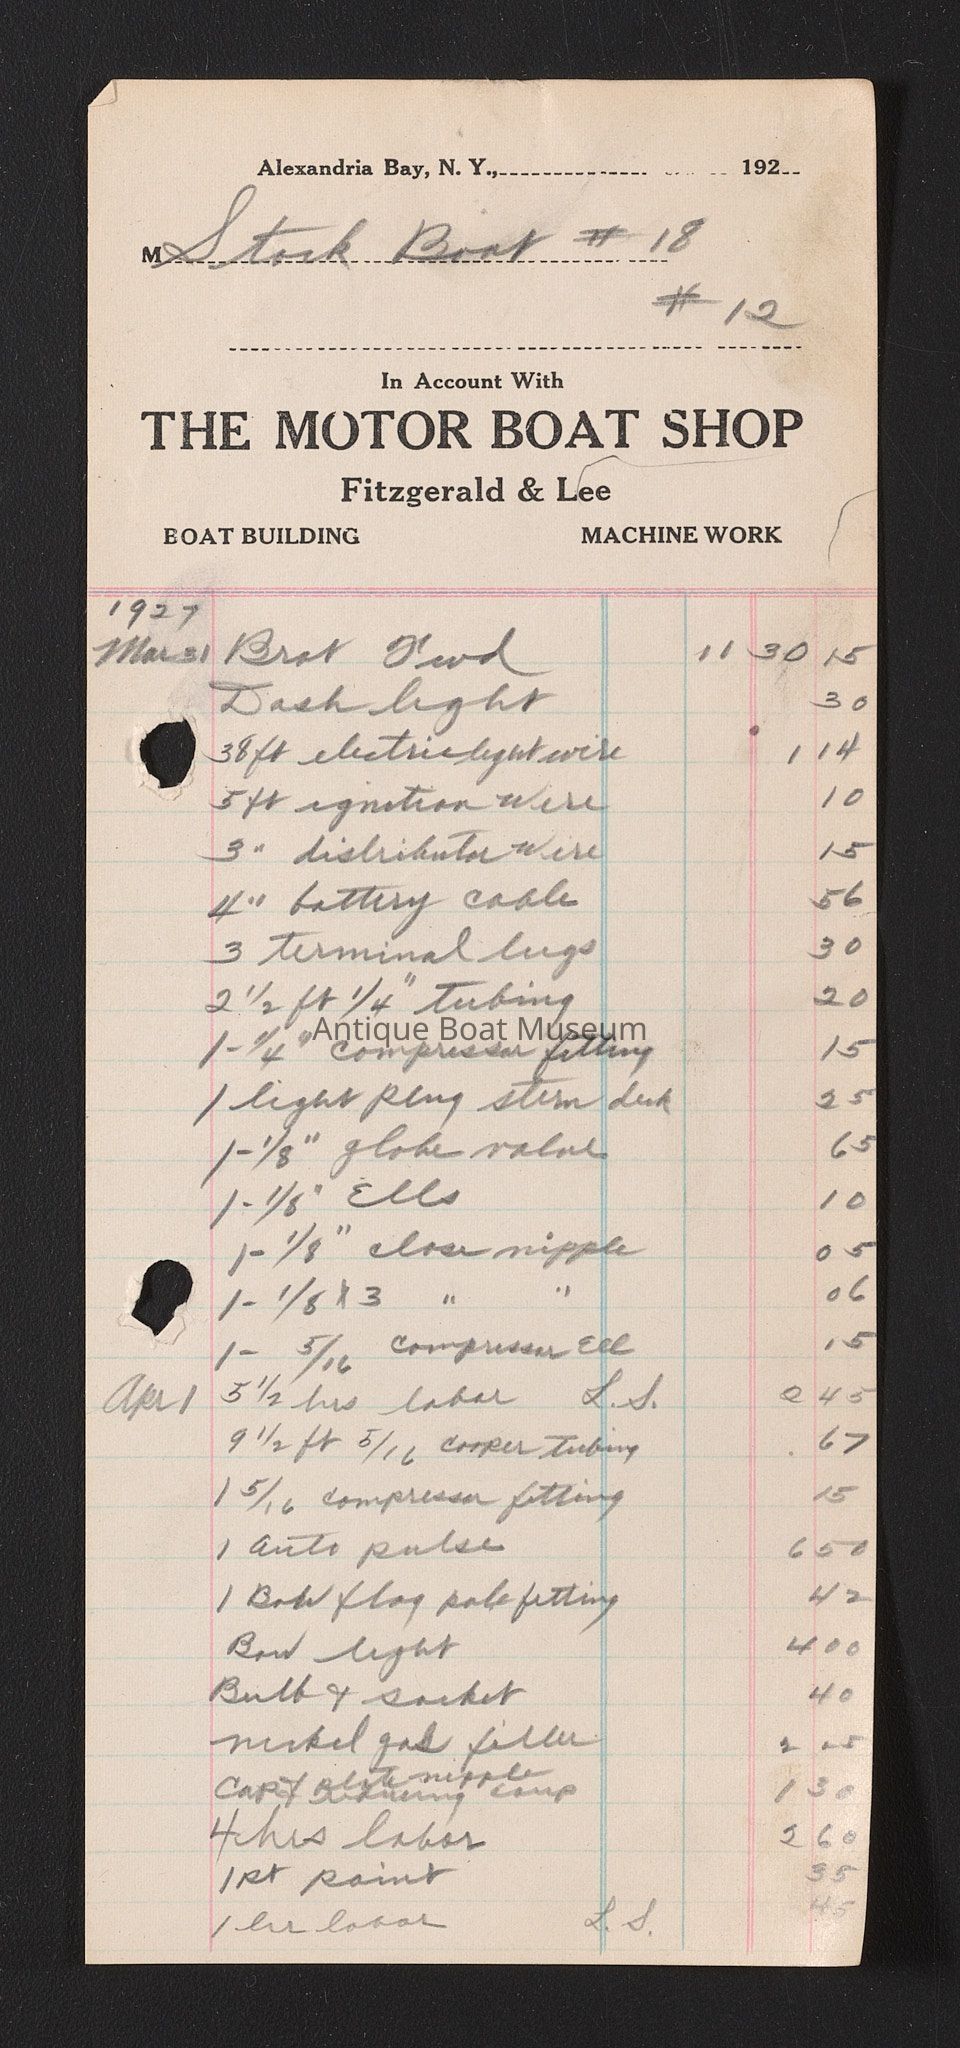 Alexandria Bay, N. Y., 192
M Stock Boat # 18
# 12
In Account With
THE MOTOR BOAT SHOP
Fitzgerald & Lee
BOAT BUILDING MACHINE WORK
1927
Mar 31 Brot Fwd 11 30 15
Dash light 30
38 ft electric light wire 1 14
5 ft ignition wire 10
3 " distributor wire 15
4 " battery cable 56
3 terminal lugs 30
2 1/2 ft 1/4" tubing 20
Antique Boat Museum
1 - 1/4" compressor fitting 15
1 light plug stern deck 25
1 - 1/8" globe valve 65
1 - 1/8" Ells 10
1 - 1/8" close nipple 05
1 - 1/8 X 3 " " 06
1 - 5/16 compressor Ell 15
Apr 1 5 1/2 hrs labor L.S. 2 45
9 1/2 ft 5/16 cooper tubing 67
1 5/16 compressor fitting 15
1 auto pulse 6 50
1 Bow flag pole fitting 42
Bow light 4 00
Bulb & socket 40
nickel gas filler 2
nipple
Cap & Reducing coup 1 30
4 hrs labor 2 60
1 pt paint 35
1 hr labor L.S. 45